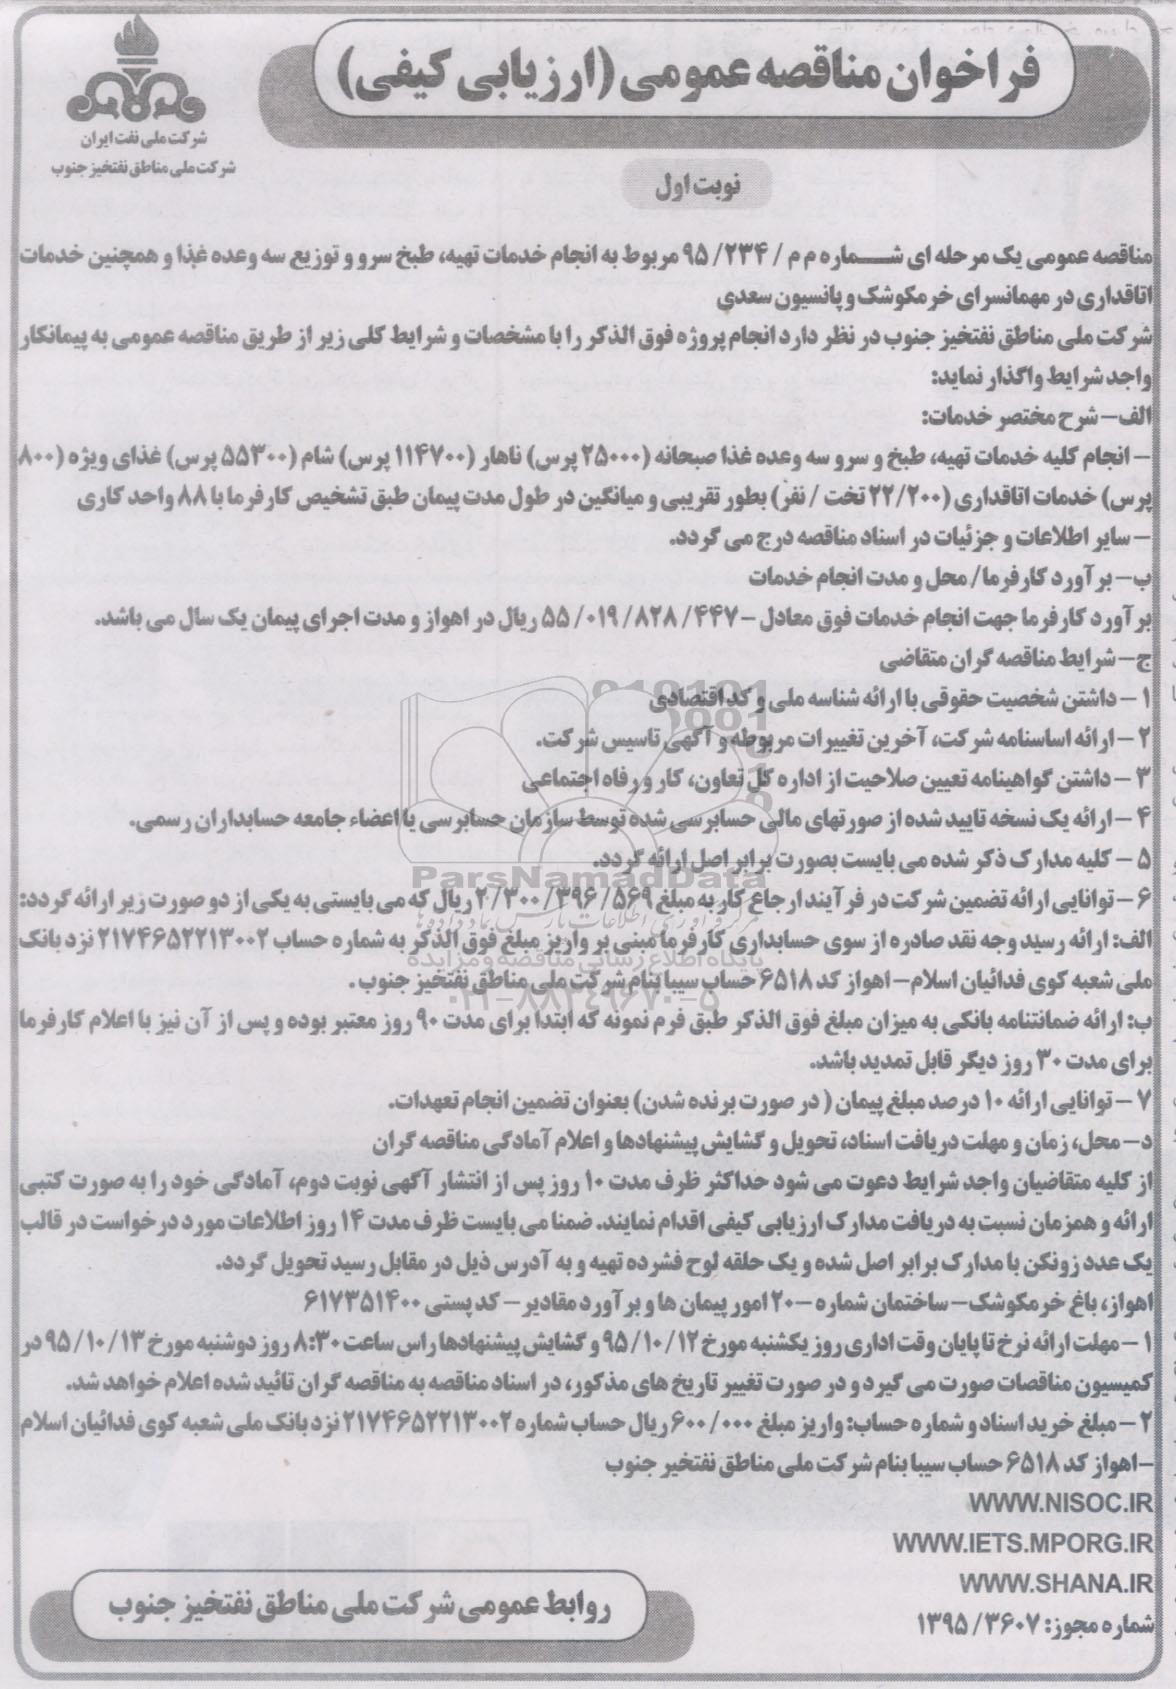 فراخوان مناقصه عمومی (ارزیابی کیفی)
شرکت ملی نفت ایران
شرکت ملی مناطق نفتخیز جنوب
نوبت اول
مناقصه عمومی یک مرحله ای شماره م م / ۹۵/۲۳۴ مربوط به انجام خدمات تهیه، طبخ سرو و توزیع سه وعده غذا و همچنین خدمات
اتاقداری در مهمانسرای خرمکوشک و پانسیون سعدی
شرکت ملی مناطق نفتخیز جنوب در نظر دارد انجام پروژه فوق الذکر را با مشخصات و شرایط کلی زیر از طریق مناقصه عمومی به پیمانکار
واجد شرایط واگذار نماید:
الف- شرح مختصر خدمات:
- انجام کلیه خدمات تهیه، طبخ و سرو سه وعده غذا صبحانه (۲۵۰۰۰ پرس) ناهار (۱۱۴۷۰۰ پرس) شام (۵۵۳۰۰ پرس) غذای ویژه (۸۰۰
پرس) خدمات اتاقداری (۲۲/۲۰۰ تخت / نفر) بطور تقریبی و میانگین در طول مدت پیمان طبق تشخیص کارفرما با ۸۸ واحد کاری
- سایر اطلاعات و جزئیات در اسناد مناقصه درج می گردد.
ب- برآورد کارفرما/ محل و مدت انجام خدمات
برآورد کارفرما جهت انجام خدمات فوق معادل -۵۵/۰۱۹/۸۲۸/۴۴۷ ریال در اهواز و مدت اجرای پیمان یک سال می باشد.
ج- شرایط مناقصه گران متقاضی
۱- داشتن شخصیت حقوقی با ارائه شناسه ملی و کد اقتصادی
۲- ارائه اساسنامه شرکت، آخرین تغییرات مربوطه و آگهی تاسیس شرکت.
۳- داشتن گواهینامه تعیین صلاحیت از اداره کل تعاون، کار و رفاه اجتماعی
۴- ارائه یک نسخه تایید شده از صورتهای مالی حسابرسی شده توسط سازمان حسابرسی یا اعضاء جامعه حسابداران رسمی.
۵- کلیه مدارک ذکر شده می بایست بصورت برابر اصل ارائه گردد.
ParsNamadData
۶- توانایی ارائه تضمین شرکت در فرآیند ارجاع کار به مبلغ ۲/۳۰۰/۳۹۶/۵۶۹ ریال که می بایستی به یکی از دو صورت زیر ارائه گردد:
الف: ارائه رسید وجه نقد صادره از سوی حسابداری کارفرما مبنی بر واریز مبلغ فوق الذکر به شماره حساب ۲۱۷۴۶۵۲۲۱۳۰۰۲ نزد بانک
پایگاه اطلاع رسانی مناقصه و مزایده
ملی شعبه کوی فدائیان اسلام- اهواز کد ۶۵۱۸ حساب سیبا بنام شرکت ملی مناطق نفتخیز جنوب.
۰۲۱-۸۸۳۴۹۶۷۰-۵
ب: ارائه ضمانتنامه بانکی به میزان مبلغ فوق الذکر طبق فرم نمونه که ابتدا برای مدت ۹۰ روز معتبر بوده و پس از آن نیز با اعلام کارفرما
برای مدت ۳۰ روز دیگر قابل تمدید باشد.
۷- توانایی ارائه ۱۰ درصد مبلغ پیمان ( در صورت برنده شدن) بعنوان تضمین انجام تعهدات.
د- محل، زمان و مهلت دریافت اسناد، تحویل و گشایش پیشنهادها و اعلام آمادگی مناقصه گران
از کلیه متقاضیان واجد شرایط دعوت می شود حداکثر ظرف مدت ۱۰ روز پس از انتشار آگهی نوبت دوم، آمادگی خود را به صورت کتبی
ارائه و همزمان نسبت به دریافت مدارک ارزیابی کیفی اقدام نمایند. ضمنا می بایست ظرف مدت ۱۴ روز اطلاعات مورد درخواست در قالب
یک عدد زونکن با مدارک برابر اصل شده و یک حلقه لوح فشرده تهیه و به آدرس ذیل در مقابل رسید تحویل گردد.
اهواز، باغ خرمکوشک- ساختمان شماره ۲۰- امور پیمان ها و برآورد مقادیر- کد پستی ۶۱۷۳۵۱۴۰۰
۱- مهلت ارائه نرخ تا پایان وقت اداری روز یکشنبه مورخ ۹۵/۱۰/۱۲ و گشایش پیشنهادها راس ساعت ۸:۳۰ روز دوشنبه مورخ ۹۵/۱۰/۱۳ در
کمیسیون مناقصات صورت می گیرد و در صورت تغییر تاریخ های مذکور، در اسناد مناقصه به مناقصه گران تائید شده اعلام خواهد شد.
۲- مبلغ خرید اسناد و شماره حساب: واریز مبلغ ۶۰۰/۰۰۰ ریال حساب شماره ۲۱۷۴۶۵۲۲۱۳۰۰۲ نزد بانک ملی شعبه کوی فدائیان اسلام
-اهواز کد ۶۵۱۸ حساب سیبا بنام شرکت ملی مناطق نفتخیر جنوب
WWW.NISOC.IR
WWW.IETS.MPORG.IR
WWW.SHANA.IR
شماره مجوز: ۱۳۹۵/۳۶۰۷
روابط عمومی شرکت ملی مناطق نفتخیز جنوب